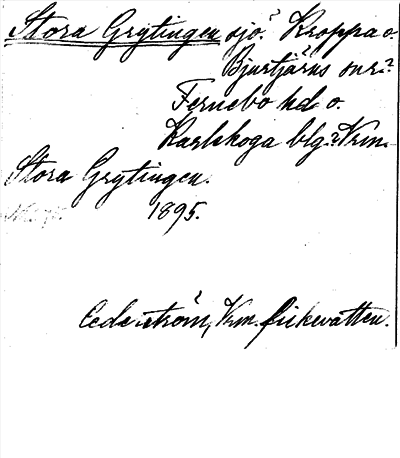 Stora Grytingen sjö? Kroppa o.
Bjurtjärns snr?
Fernebo hd o.
Karlskoga blg? Vrm.
Stora Grytingen.
1895.
Cederström, Vrm. fiskevatten.